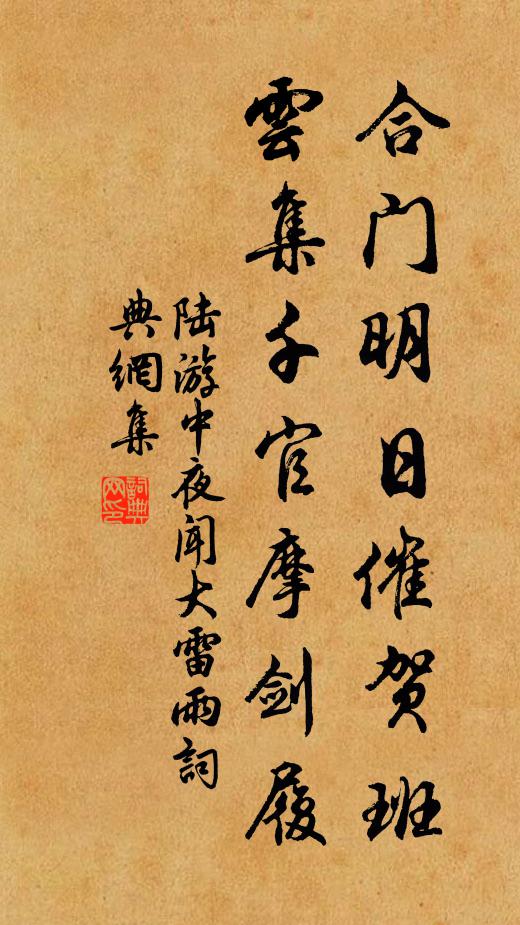 合门明日催贺班
雲集千官摩剑履
陆游中夜闻大雷雨詞
典網集
詞典网印